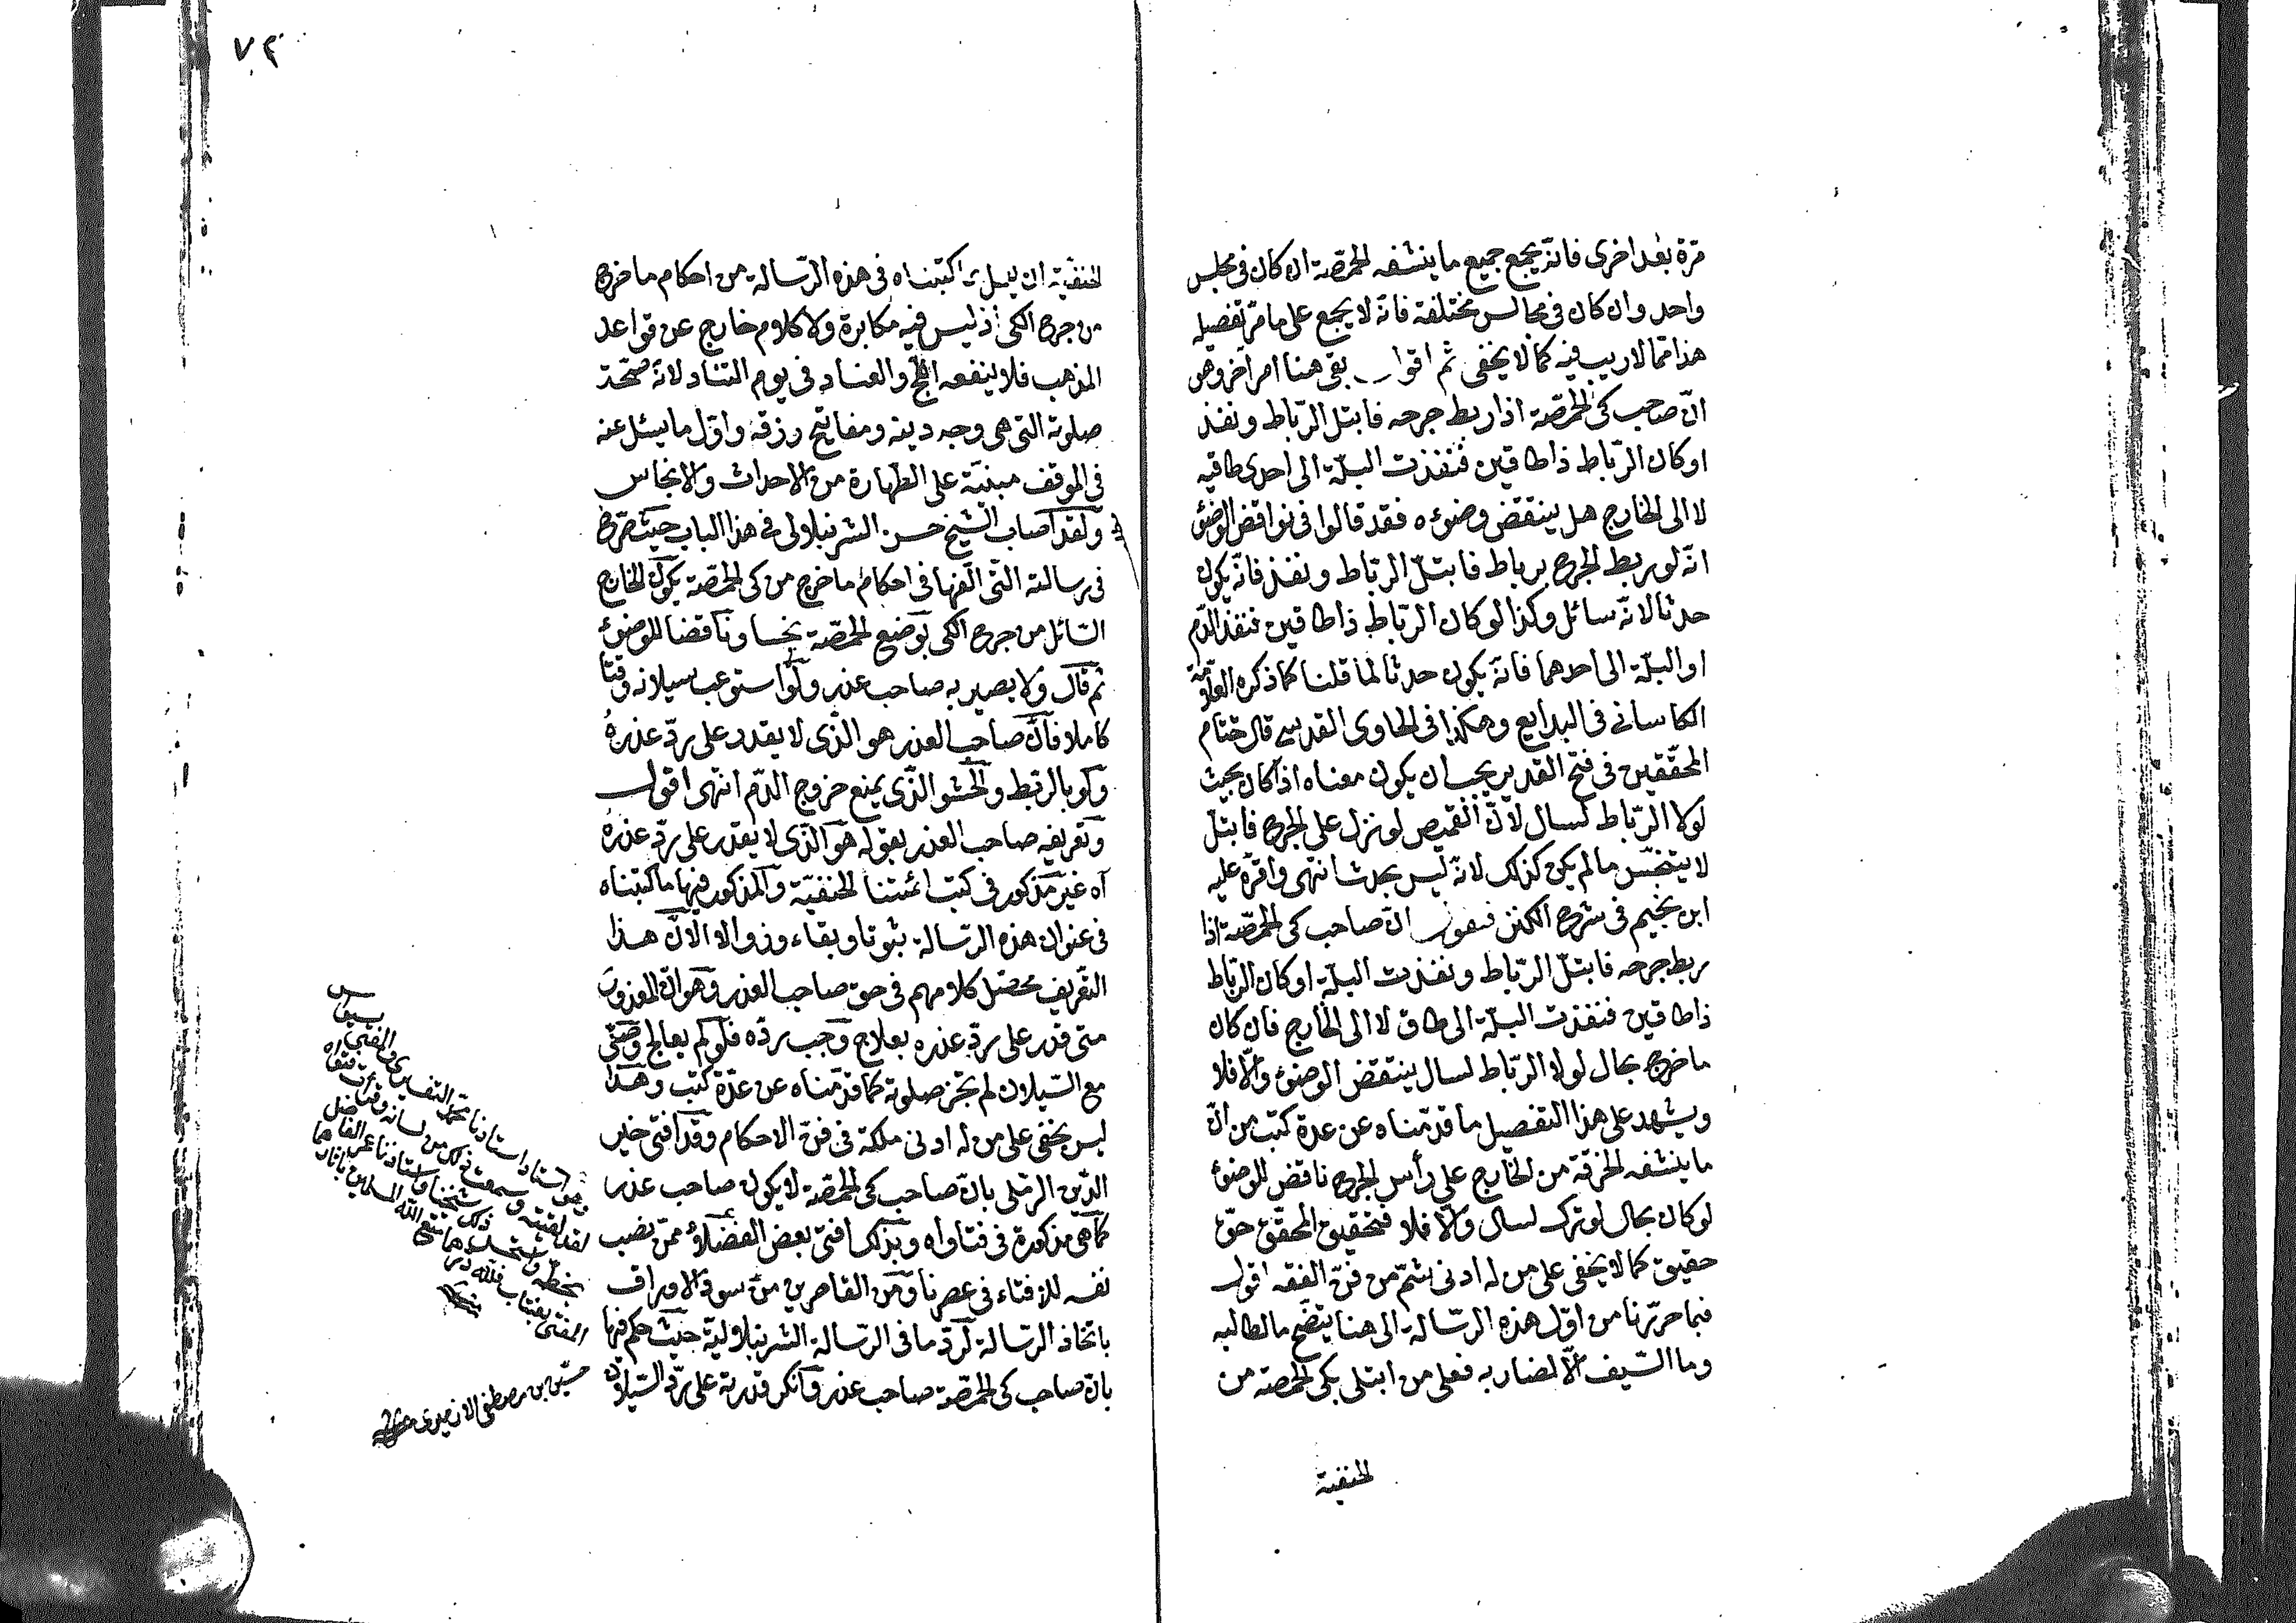 مرّة بعد اخرى فانّه يجمع جميع ما ينشفه الحمّصة ان كان فى مجلس
واحد وان كان فى مجالس مختلفة فانّه لا يجمع على ما مرّ تفصيله
هذا ممّا لا ريب فيه كما لا يخفى ثم اقول بقى هنا امر آخر وهو
انّ صاحب كى الحمّصة اذا ربط جرحه فابتل الرّباط ونفذ
او كان الرّباط ذا طاقين فنفذت البلّة الى احدى طاقيه
لا الى الخارج هل ينتقض وضوءه فقد قالوا فى نواقض الوضوء
انّه لو ربط الجرح برباط فابتلّ الرّباط ونفذ فانّه يكون
حدثا لانّه سائل وكذا لو كان الرّباط ذا طاقين فنفذ الدّم
او البلّة الى احدهما فانّه يكون حدثا لما قلنا كما ذكره العلّامة
الكاسانى فى البدايع وهكذا فى الحاوى القدسى قال ختام
المحقّقين فى فتح القدير يجب ان يكون معناه اذا كان بحيث
لولا الرّباط لسال لانّ القميص لو نزل على الجرح فابتلّ
لا يتنجّس ما لم يكن كذلك لانّه ليس بحدث انتهى واقرّه عليه
ابن نجيم فى شرح الكنز فنقول انّ صاحب كى الحمّصة اذا
ربط جرحه فابتلّ الرّباط ونفذت البلّة او كان الرّباط
ذا طاقين فنفذت البلّة الى طاق لا الى الخارج فان كان
ما خرج بحال لولا الرّباط لسال ينتقض الوضوء والّا فلا
ويشهد على هذا التفصيل ما قدّمناه عن عدة كتب من انّ
ما ينشفه الخرقة من الخارج على رأس الجرح ناقض للوضوء
لو كان بحال لو ترك لسال والّا فلا فتحقيق المحقّق حقّ
حقيق كما لا يخفى على من له ادنى شمّ من فنّ الفقه اقول
فبما حرّرنا من اوّل هذه الرّسالة الى هنا يتضح ما لطالبه
وما السّيف الّا لضاربه فعلى من ابتلى بكى الحمّصة من
الحنفية
٧٢
الحنفيّة ان يعمل بما كتبناه فى هذه الرّسالة من احكام ما خرج
من جرح الكى اذ ليس فيه مكابرة ولا كلام خارج عن قواعد
المذهب فلا ينفعه اللّجّ والعناد فى يوم التناد لانّ صحّة
صلوته التى هى وجه دينه ومفاتيح رزقه واوّل ما يسئل عنه
فى الموقف مبنيّة على الطّهارة من الاحداث والانجاس
ولقد اصاب الشّيخ حسن الشرنبلاولى فى هذا الباب حيث صرّح
فى رسالته التّى الّفها فى احكام ما خرج من كى الحمّصة بكون الخارج
السّائل من جرح الكى بوضع الحمّصة نجسا وناقضا للوضوء
ثم قال ولا يصير به صاحب عذر ولو استوعب سيلانه وقتا
كاملا فانّ صاحب العذر هو الذّى لا يقدر على ردّ عذره
ولو بالربّط والحشو الذّى يمنع خروج الدّم انتهى اقول
وتعريفه صاحب العذر بقوله هو الذّى لا يقدر على ردّ عذره
آه غير مذكور فى كتب ائمّتنا الحنفيّة والمذكور فيها ما كتبناه
فى عنوان هذه الرّسالة بثوتا وبقاء وزوالا الّا انّ هذا
التّعريف محصّل كلامهم فى حق صاحب العذر وهو انّ المعذور
متى قدر على ردّ عذره بعلاج وجب ردّه فلو لم يعالج وصلّى
مع السّيلان لم تجز صلوته كما قدّمناه عن عدّة كتب وهذا
ليس يخفى على من له ادنى ملكة فى فنّ الاحكام وقد افتى خير
الدّين الرّملى بانّ صاحب كى الحمّصة لا يكون صاحب عذر
كما هى مذكورة فى فتاواه وبذلك افتى بعض الفضلاء ممّن نصب
نفسه للافتاء فى عصرنا ومن القاصرين من سود الاوراق
باتخاذ الرّسالة لردّ ما فى الرّسالة الشرنبلاولية حيث حكم فيها
بانّ صاحب كى الحمّصة صاحب عذر وانكر قدرته على ردّ السّيلان
استاد استادنا محمّد
لقد لقيته وسمعت ذلك من لسانه
شيخنا واستادنا عمر
حسين بن مصطفى